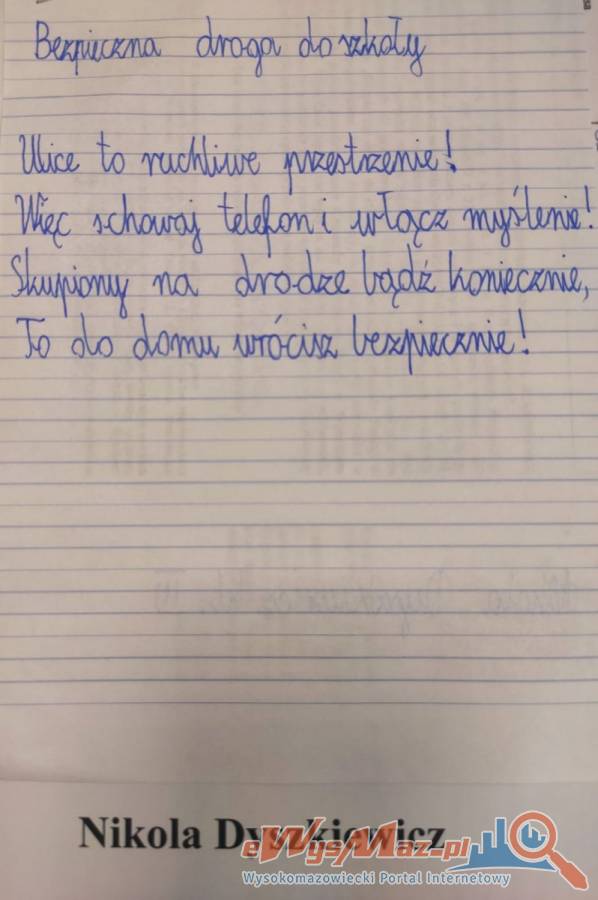 Bezpieczna droga do szkoły
Ulice to ruchliwe przestrzenie!
Więc schowaj telefon i włącz myślenie!
Skupiony na drodze bądź koniecznie,
To do domu wrócisz bezpiecznie!
Nikola Dyszkiewicz
eWysMaz.pl
Wysokomazowiecki Portal Internetowy